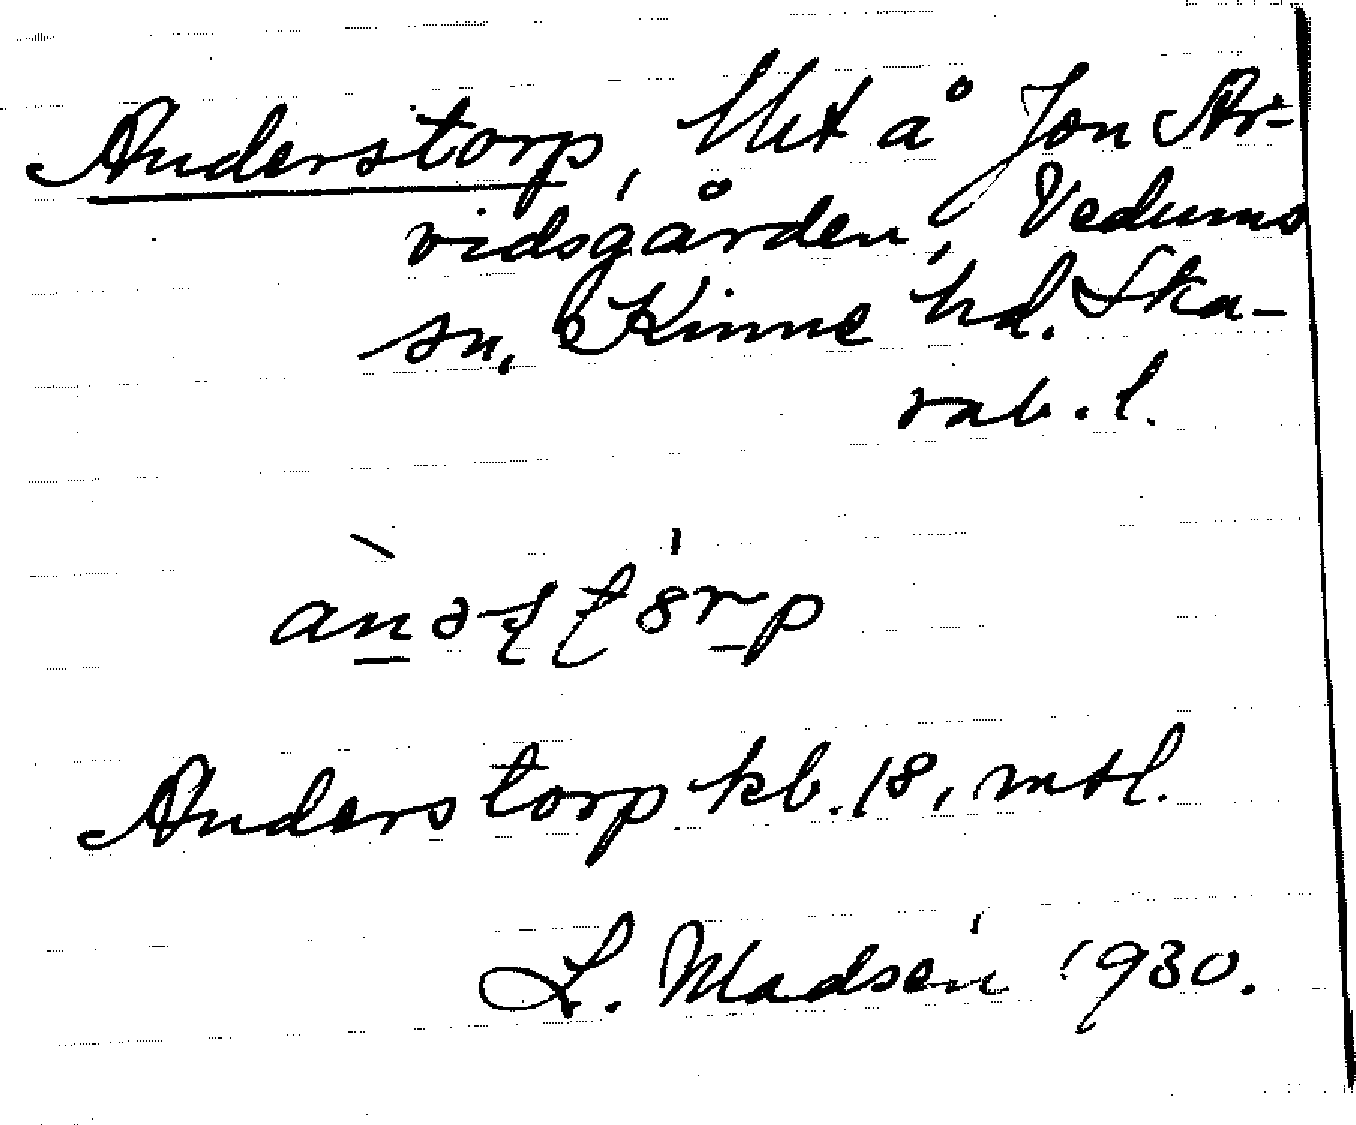 Anderstorp, lht å Jon Ar-
vidsgården, Vedums
sn, Kinne hd. Ska-
rab. l.
Anderstorp kb. 18, mtl.
L. Madsén 1930.